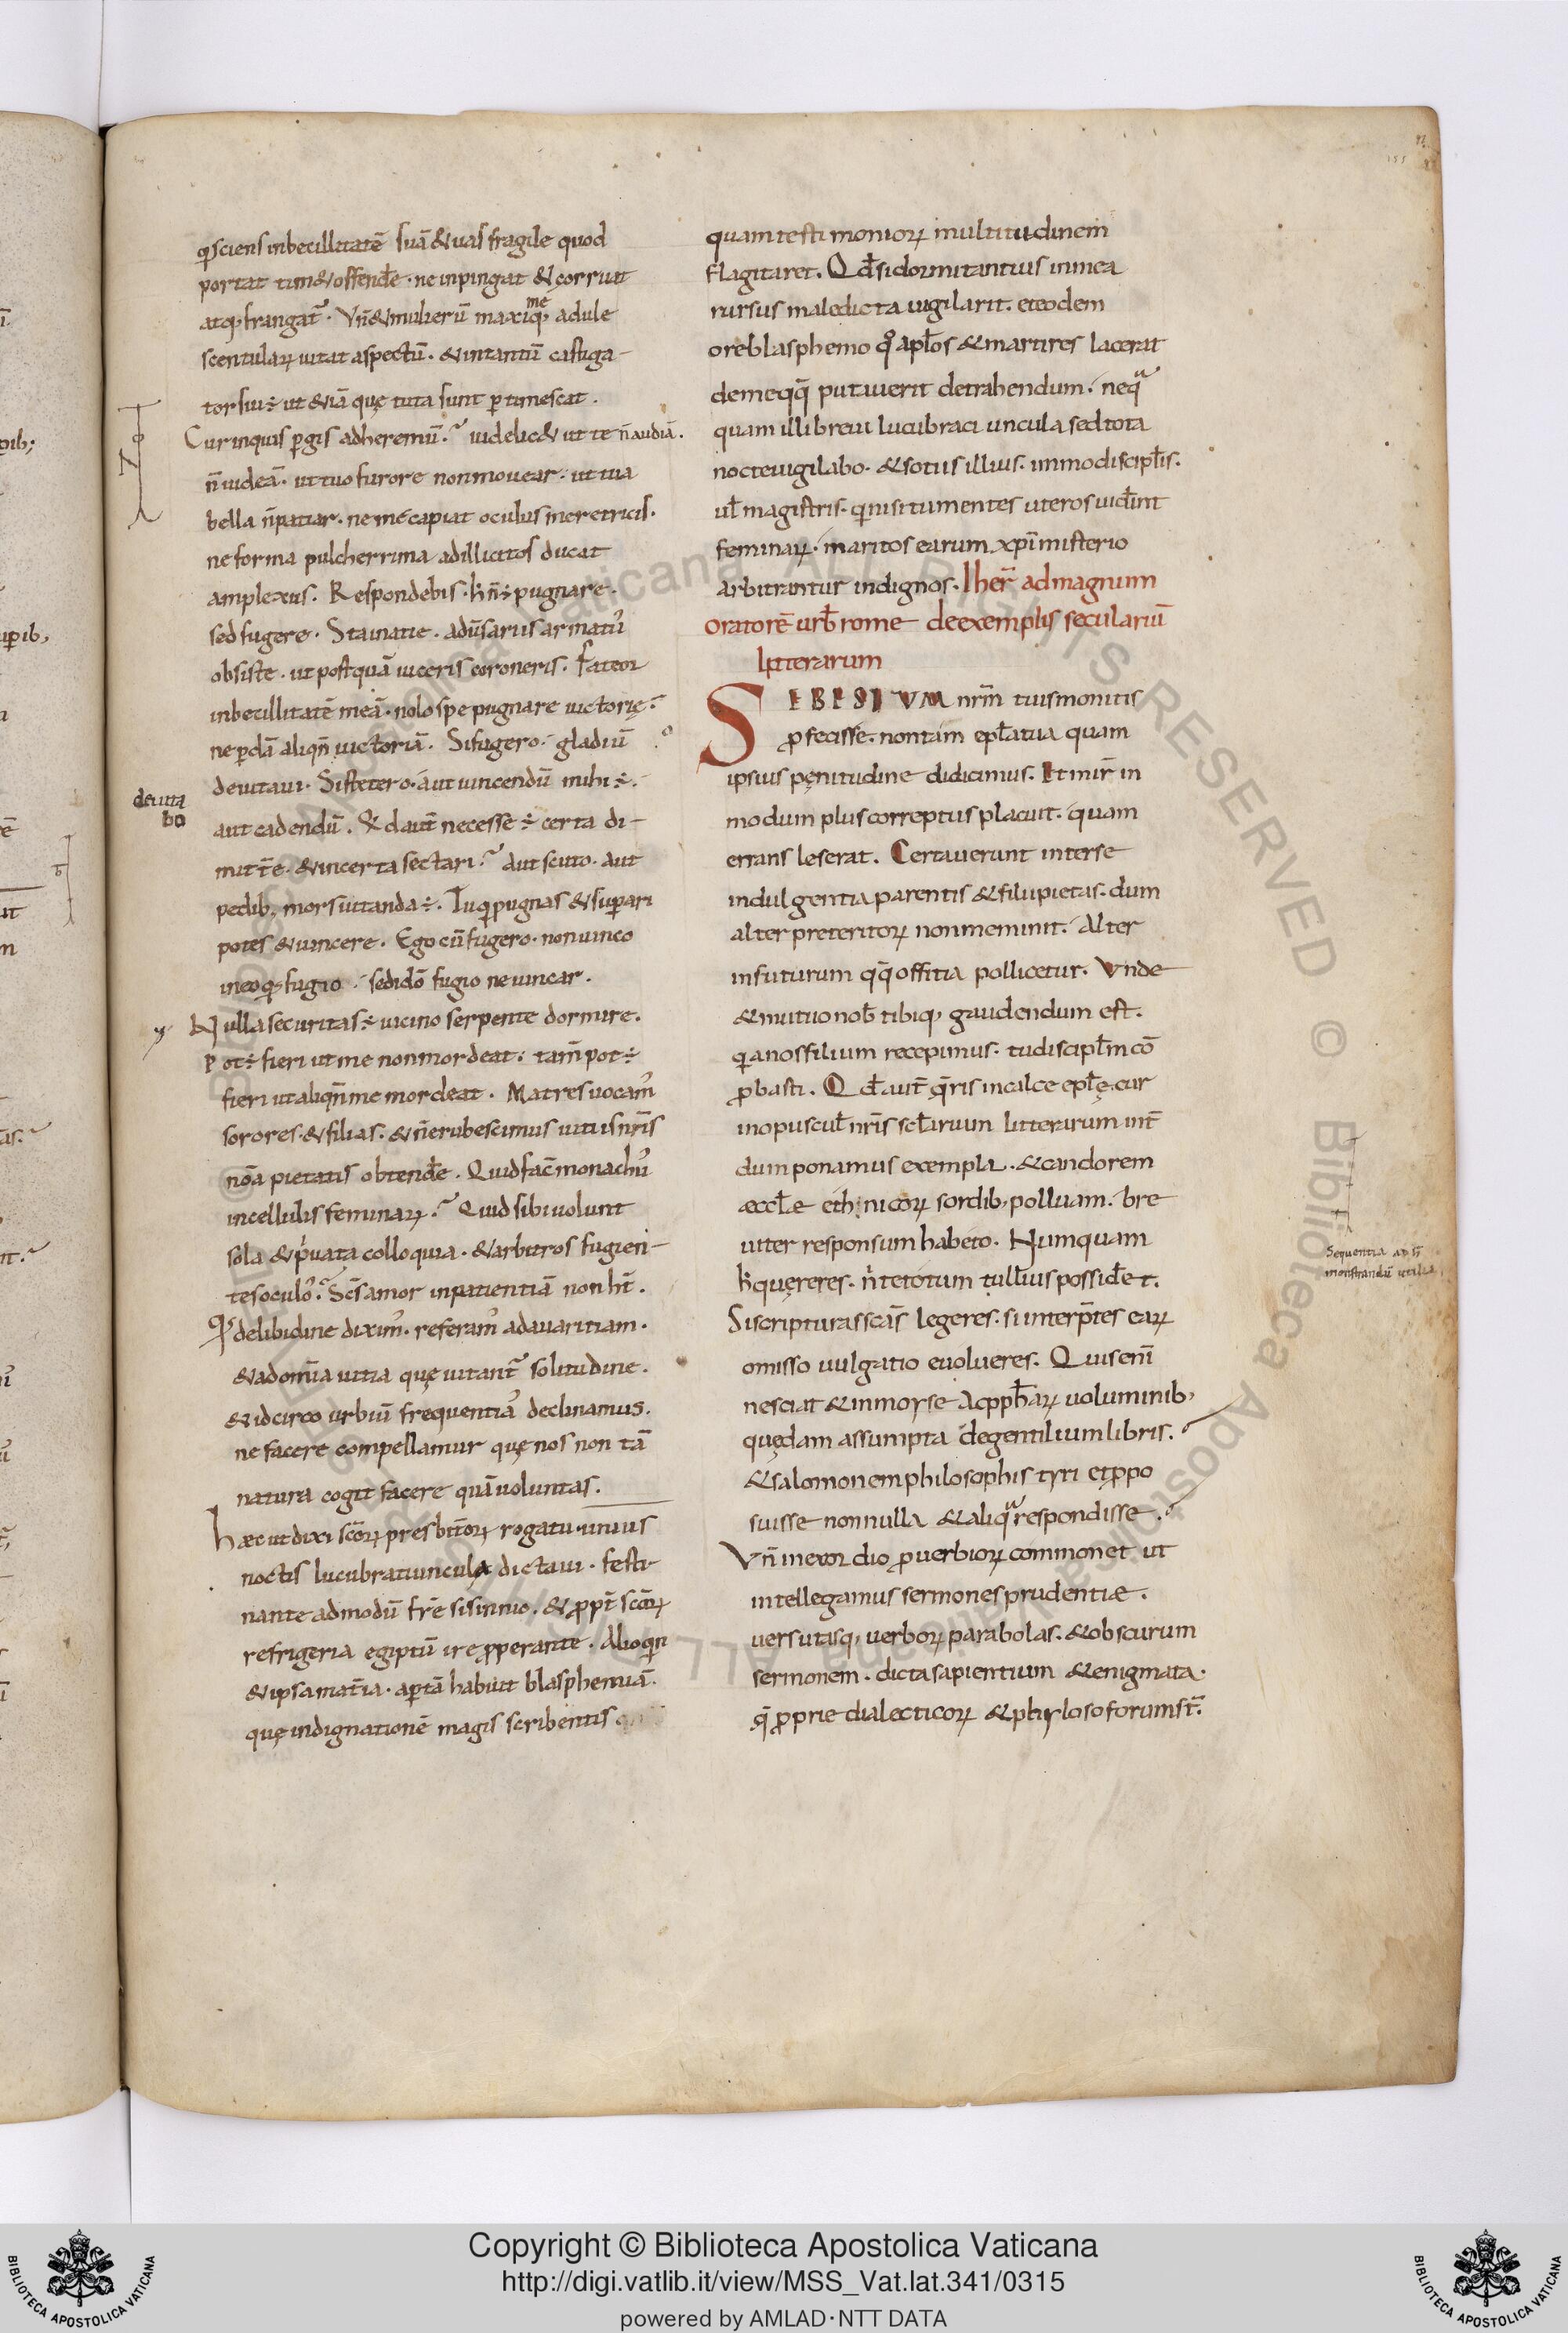 qı sciens inbecillitatē suā & uas fragile quod
portat tim& offendēe · ne inpingat & corruat
atq; frangat̃ · Vn̄ & mulierū maxiq; adule
me
scentularꝝ uitat aspectū · & intantū castiga-
tor sui ÷ ut &iā quę tuta sunt ptimescat .
Cur inquis pgis adheremū ? uidelic& ut te n̄ audiā .
n̄ uideā · ut tuo furore non mouear · ut tua
bella n̄ patiar · ne me capiat oculus meretricis ·
ne forma pulcherrima ad illicitos ducat
amplexus . Respondebis · h̄ n̄ ÷ pugnare ·
sed fugere · Sta in acie · aduūsariis armatu᾽
obsiste · ut postquā uiceris coroneris . Fateor
inbecillitatē meā · nolo spe pugnare uictorię ?
ne pdā aliqn̄ uictoriā . Si fugero · gladiū
deuitaui · Si stetero · aut uincendū mihi ÷ ·
deuita
bo
aut cadendū . Quid aut̄ necesse ÷ certa di-
mitt̄e · & incerta sectari ? aut scuto · aut
pedib; mors uitanda ÷ . Tu qı pugnas & supari
potes & uincere . Ego cū fugero · non uinco
in eo qd fugio · sed ido fugio ne uincar .
Nulla securitas ÷ uicino serpente dormire .
Pot ÷ fieri ut me non mordeat · tam̄ pot ÷
fieri ut aliqn̄ me mordeat . Matres uocam᾽
sorores · & filias · & n̄ erubescimus uitiis nr̄is
nōa pietatis obtendēe . Quid fac̄ monachu᾽
in cellulis feminarꝝ ? Quid sibi uolunt
sola & pruata colloquia · & arbitros fugien-
tes oculo᾽ ? Sc̄s amor inpatientiā non ht̄ .
Qd de libidine dixim᾽ · referam᾽ ad auaritiam ·
& ad omīa uitia quę uitant̃ solitudine .
& idcirco urbiū frequentia᾽ declinamus .
ne facere compellamur quę nos non tā
natura cogit facere quā uoluntas .
Haec ut dixi sc̄orꝝ presbit̄orꝝ rogatu · unius
noctis lucubratiuncula dictaui · festi-
nante admodū fr̄e sisinnio · & ꝓpt̄ sc̄orꝝ
refrigeria egiptū ire ꝓperante . Alioqın
& ipsa mat̄ia · aptā habuit blasphemiā .
quę indignationē magis scribentis
quam testimoniorꝝ multitudinem
flagitaret . Qd̄ si dormitantius in mea
rursus maledicta uigilarit · et eodem
ore blasphemo qͦ apl̄os & martires lacerat
de me qq̄ putuuerit detrahendum · neqͣ
quam illi breui lucubraciuncula sed tota
nocte uigilabo · & sotiis illius · immo discipl̄is ·
ul̄ magistris · qı nisi tumentes uteros uidīnt
feminarꝝ · maritos earum xpı̄ misterio
arbitrantur indignos · Iher̄ ad magnum
oratorē urb̄ rome de exemplis seculariū
litterarum
SEBESIVM nr̄m tuis monitis
ꝓfecisse · non tam epl̄a tua quam
ipsius pęnitudine didicimus . Et mir̄ in
modum plus correptus placuit · quam
errans leserat . Certauerunt inter se
indulgentia parentis & filii pietas · dum
alter preteritorꝝ non meminit · Alter
in futurum qq̄ offitia pollicetur . Vnde
& mutuo nob̄ tibiq; gaudendum est .
qıa nos filium recepimus · tu discipl̄m cō
ꝓbasti . Qd̄ aut̄ q̄ris in calce epl̄ę · cur
in opuscul̄ nr̄is scl̄arium litterarum int̄
dum ponamus exempla · & candorem
aeccl̄e ethnicorꝝ sordib; polluam · bre
uiter responsum habeto · Numquam
h̄ quęreres · n̄ te totum tullius possid̄et ·
Si scripturas sc̄as legeres · si interp̄tes earꝝ
omisso uulgatio euolueres . Quis enı̄
nesciat & in moyse Ac ꝓph̄arꝝ uoluminib;
quędam assumpta de gentilium libris .
& salomonem philosophis tyri et ꝓpo
suisse nonnulla & aliqͣ respondisse .
Vn̄ in exordio ꝓuerbiorꝝ commonet ut
intellegamus sermones prudentiae .
uersutiasq; uerborꝝ parabolas · & obscurum
sermonem · dicta sapientium & enigmata ·
q̄ ꝓprie dialecticorꝝ & phylosoforum st̄ .
Sequentia
monstrandū utilia
Copyright © Biblioteca Apostolica Vaticana
http://digi.vatlib.it/view/MSS_Vat.lat.341/0315
powered by AMLAD·NTT DATA
BIBLIOTECA APOSTOLICA VATICANA
BIBLIOTECA APOSTOLICA VATICANA